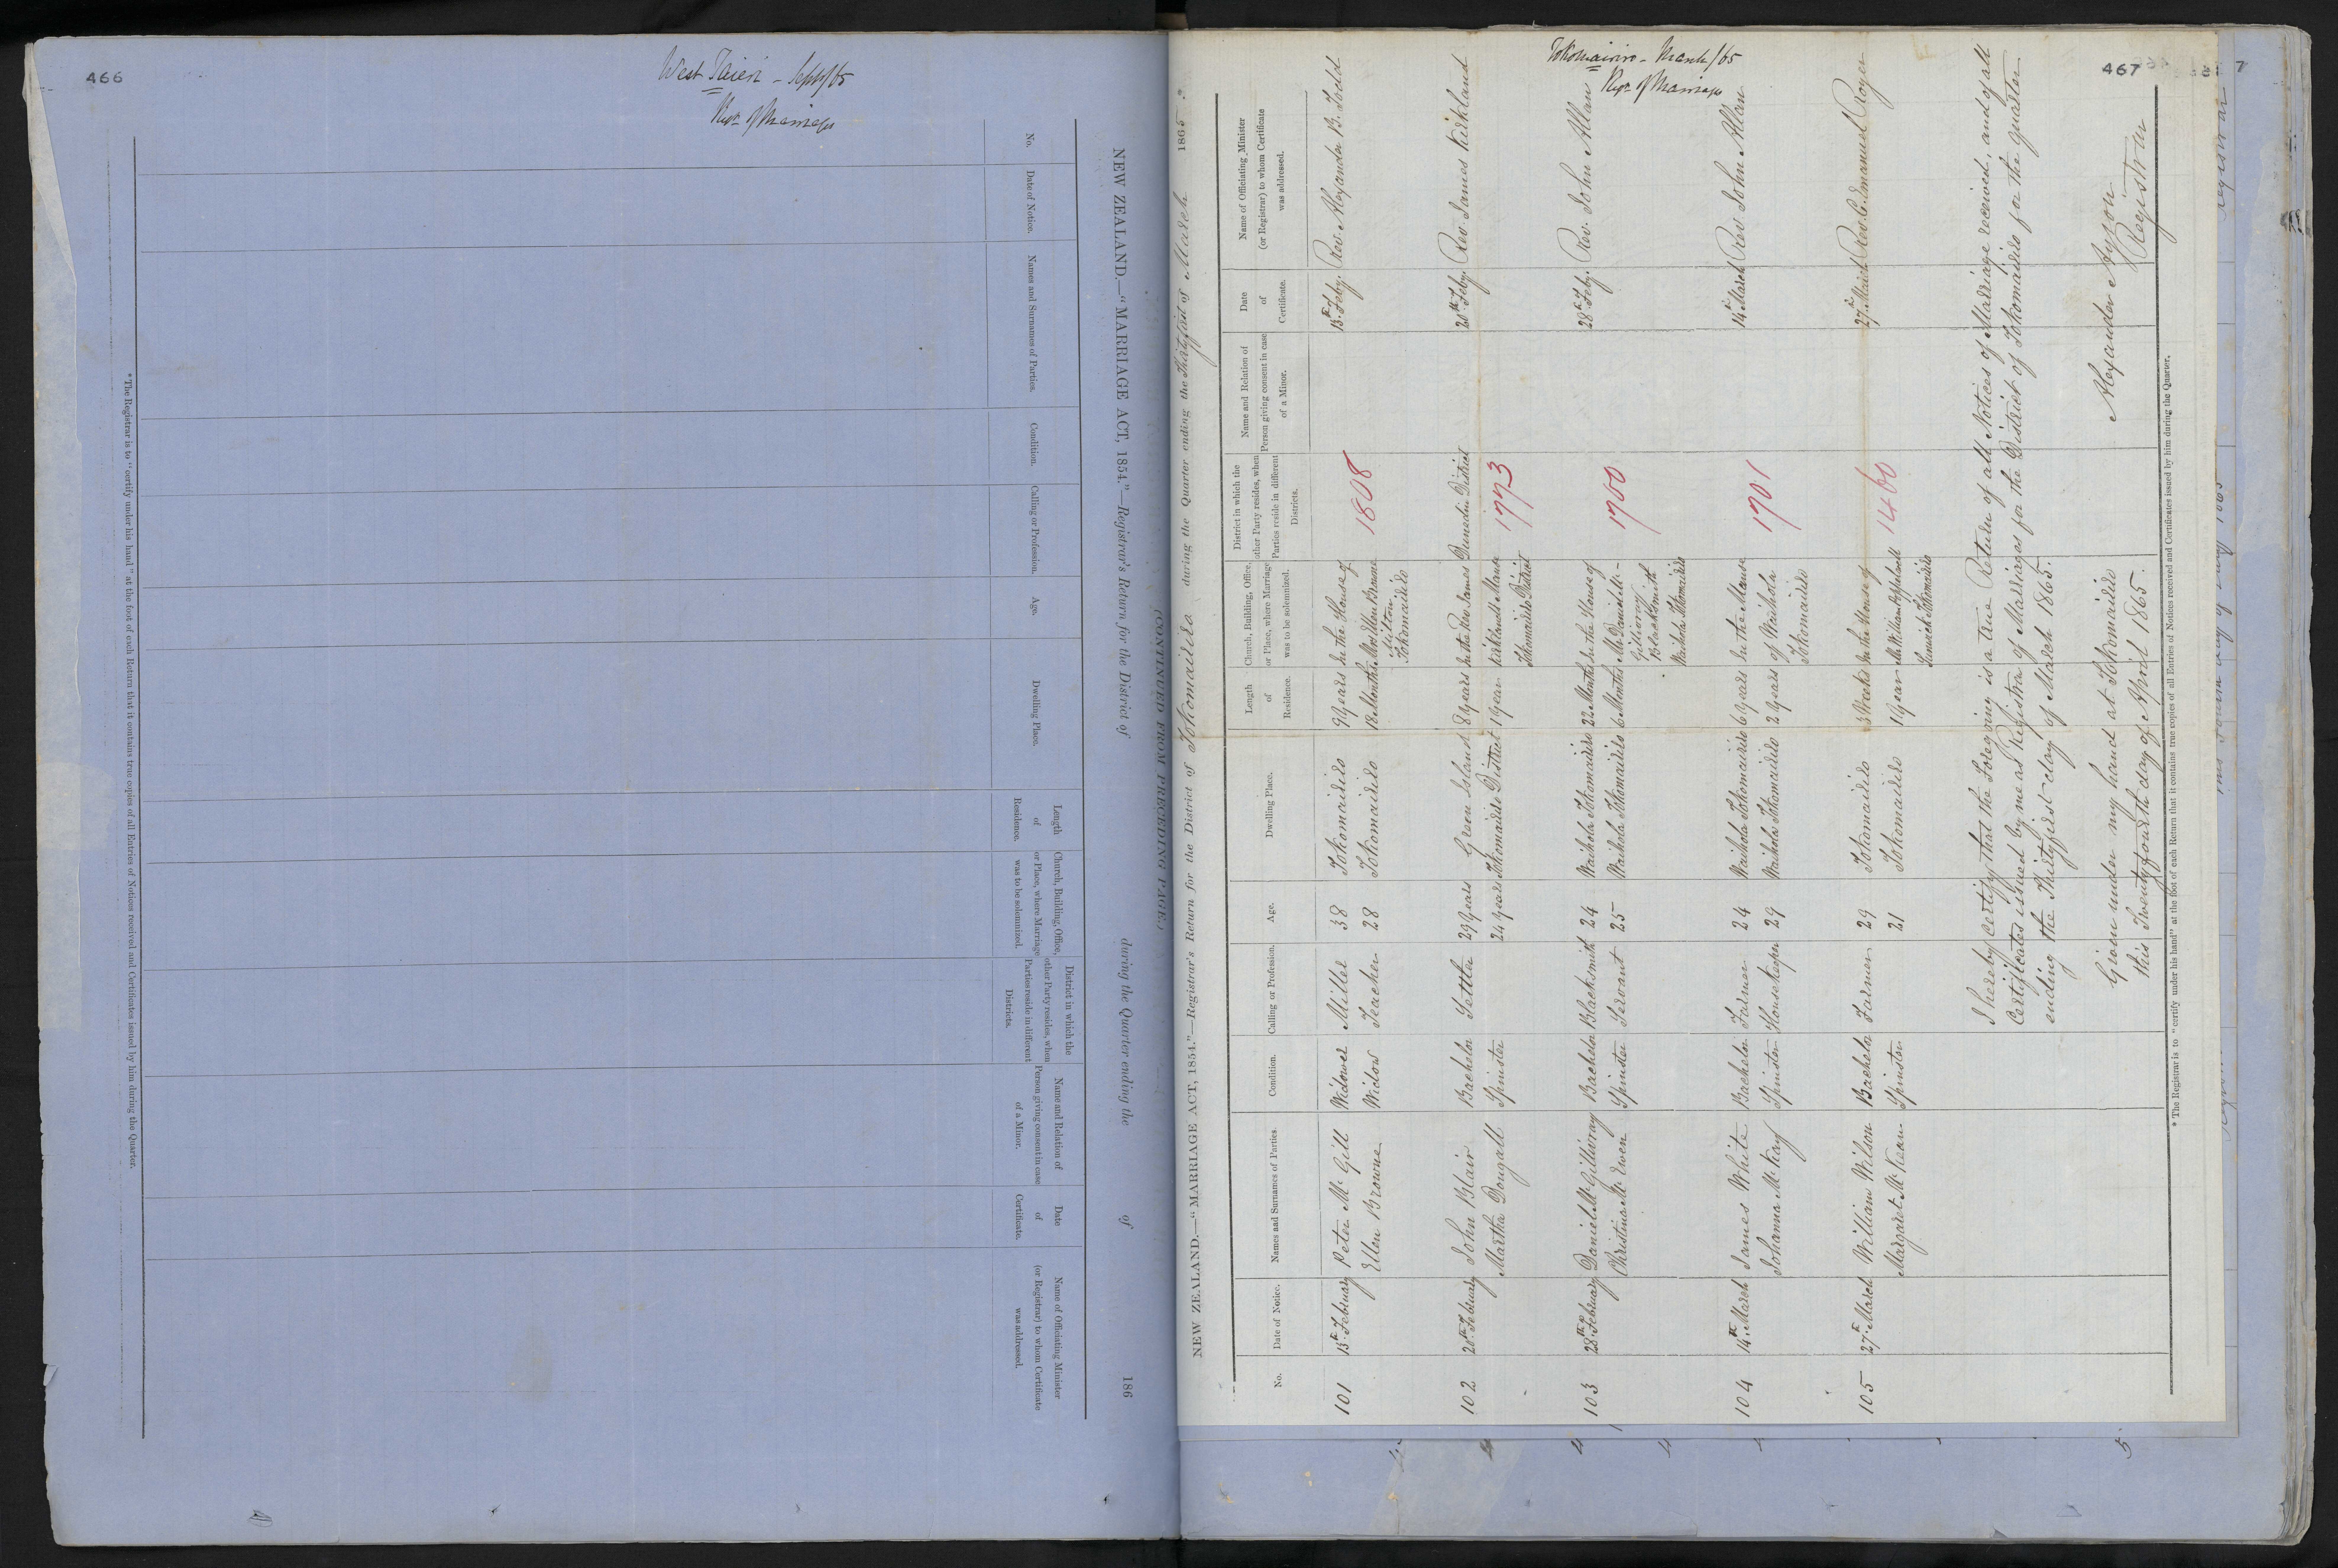 466
West Taieri - Sept/65
Regr of Marriages
NEW ZEALAND.—"MARRIAGE ACT, 1854."—Registrar's Return for the District of during the Quarter ending the of 186
No.
Date of Notice.
Names and Surnames of Parties.
Condition.
Calling or Profession.
Age.
Dwelling Place.
Length
of
Residence.
Church, Building, Office,
or Place, where Marriage
was to be solemnized.
District in which the
other Party resides, when
Parties reside in different
Districts.
Name and Relation of
Person giving consent in case
of a Minor.
Date
of
Certificate.
Name of Officiating Minister
(or Registrar) to whom Certificate
was addressed.
* The Registrar is to "certify under his hand" at the foot of each Return that it contains true copies of all Entries of Notices received and Certificates issued by him during the Quarter.
(CONTINUED FROM PRECEDING PAGE.)
467
Tokomairiro - March/65
Regr of Marriages
NEW ZEALAND.—"MARRIAGE ACT, 1854."—Registrar's Return for the District of Tokomairiro during the Quarter ending the Thirtyfirst of March 1865 *
No.
Date of Notice.
Names and Surnames of Parties.
Condition.
Calling or Profession.
Age.
Dwelling Place.
Length
of
Residence.
Church, Building, Office,
or Place, where Marriage
was to be solemnized.
District in which the
other Party resides, when
Parties reside in different
Districts.
Name and Relation of
Person giving consent in case
of a Minor.
Date
of
Certificate.
Name of Officiating Minister
(or Registrar) to whom Certificate
was addressed.
101 15th February Peter McGill Widower Miller 38 Tokomairiro 9 years In the House of 15th Feby. Rev. Alexander B. Todd
Ellen Browne Widow Teacher 28 Tokomairiro 18 Months Mrs Ellen Browne 1808
Milton
Tokomairiro
102 20th February John Blair Bachelor Settler 29 years Green Island 8 years In the Rev James Dunedin District 20th Feby. Rev. James Kirkland
Martha Dougall Spinster 24 years Tokomairiro District 1 year Kirklands Manse 1773
Tokomairiro District
103 28th February Daniel McGillivray Bachelor Blacksmith 24 Waihola Tokomairiro 22 Months In the House of 28th Feby. Rev. John Allan
Christina McEwen Spinster Servant 25 Waihola Tokomairiro 6 Months Mr Daniel Mc- 1700
Gillivray
Blacksmith
Waihola Tokomairiro
104 14th March James White Bachelor Farmer 24 Waihola Tokomairiro 6 years In the Manse 14th March Rev John Allan
Johanna McKay Spinster Housekeeper 29 Waihola Tokomairiro 2 years of Waihola 1701
Tokomairiro
105 27th March William Wilson Bachelor Farmer 29 Tokomairiro 3 Weeks In the House of 27th March Rev. C. Emanuel Royer
Margaret McKean Spinster 21 Tokomairiro 1 year Mr William 1460
Tokomairiro
I hereby Certify that the Foregoing is a true Return of all Notices of Marriage received, and of all
Certificates issued by me as Registrar of Marriages for the District of Tokomairiro for the quarter
ending the Thirtyfirst day of March 1865.
Given under my hand at Tokomairiro
this Twentyfourth day of April 1865.
Alexander Ayson
Registrar
* The Registrar is to "certify under his hand" at the foot of each Return that it contains true copies of all Entries of Notices received and Certificates issued by him during the Quarter.